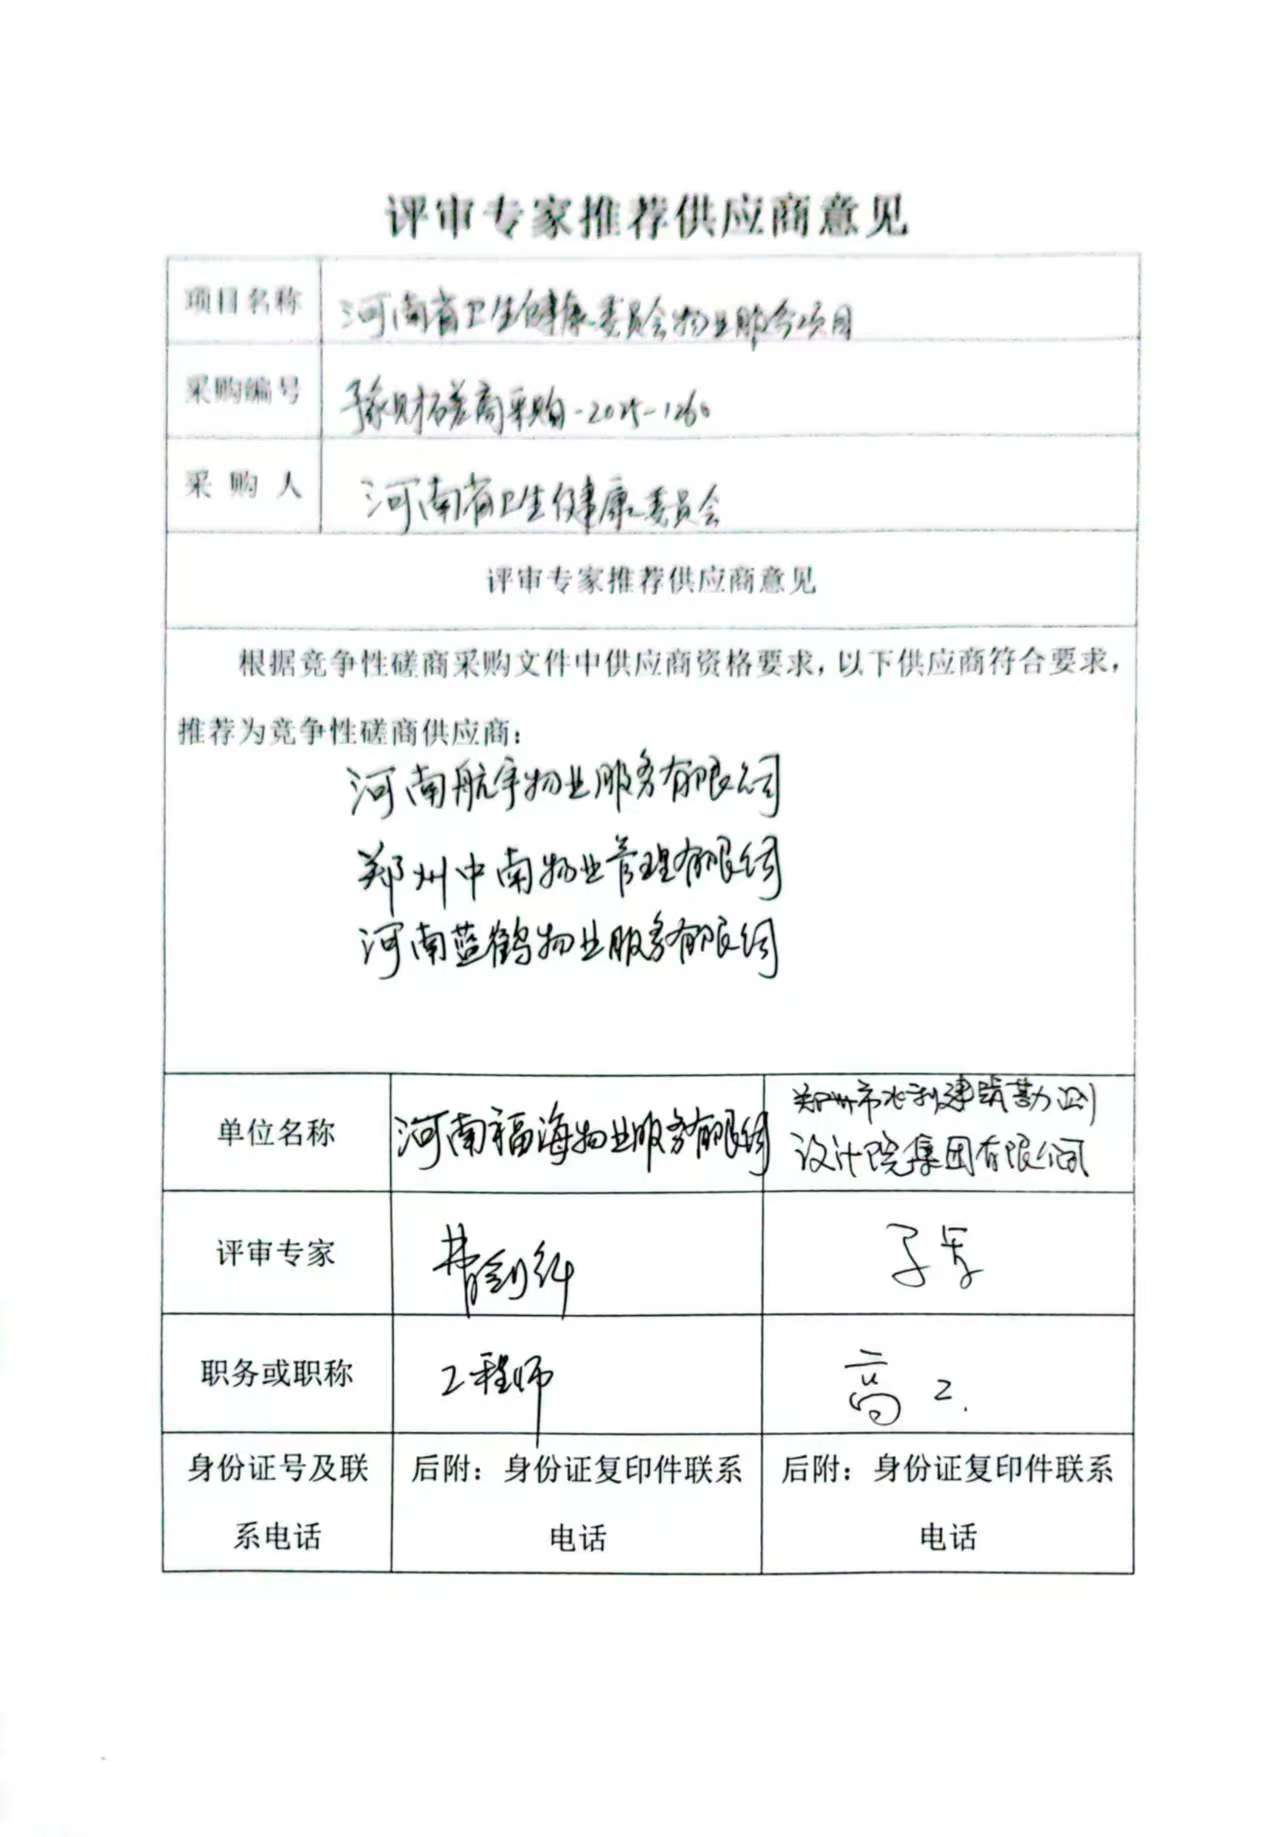 评审专家推荐供应商意见
项目名称
河南省卫生健康委员会物业服务项目
采购编号
豫财磋商采购-2025-1260
采购人
河南省卫生健康委员会
评审专家推荐供应商意见
根据竞争性磋商采购文件中供应商资格要求，以下供应商符合要求，
推荐为竞争性磋商供应商：
河南航宇物业服务有限公司
郑州中南物业管理有限公司
河南蓝鹤物业服务有限公司
单位名称
河南福海物业服务有限公司
郑州市水利建筑勘测
设计院集团有限公司
评审专家
职务或职称
工程师
高工.
身份证号及联
系电话
后附：身份证复印件联系
电话
后附：身份证复印件联系
电话